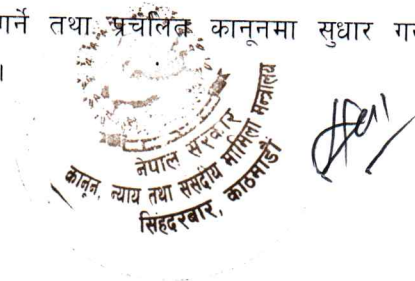 गर्ने तथा प्रचलित कानूनमा सुधार गर
।
नेपाल सरकार
कानून, न्याय तथा संसदीय मामिला मन्त्रालय
सिंहदरबार, काठमाडौं